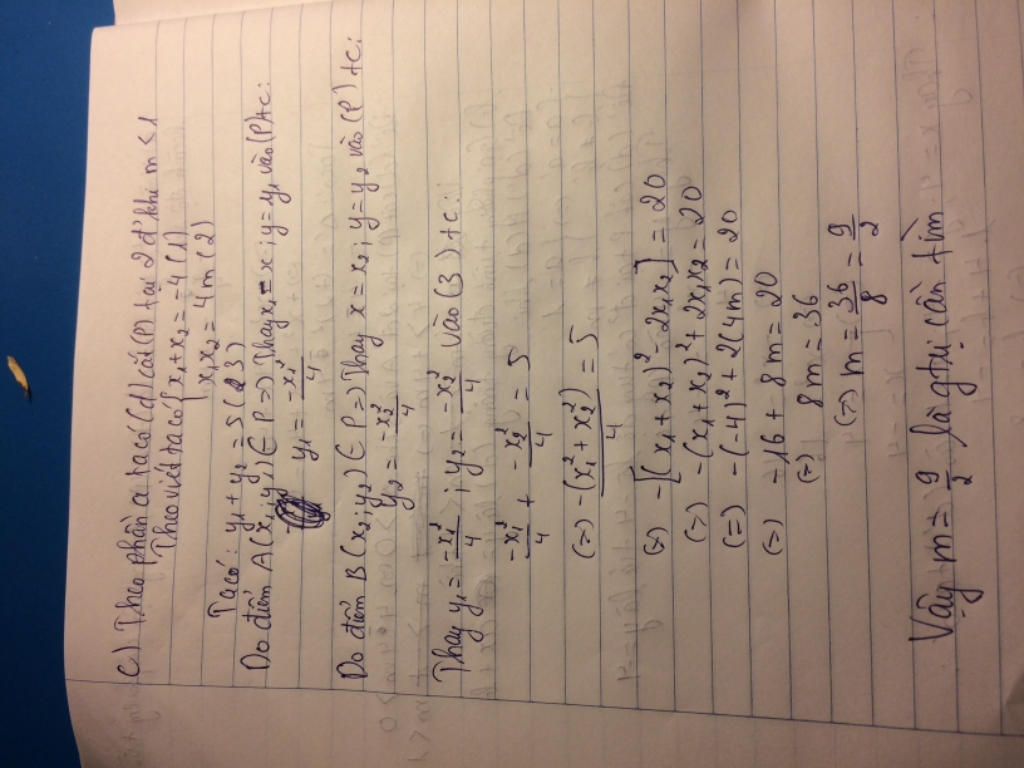 c) Theo phần a ta có (d) cắt (P) tại 2 đ' khi m < 1
Theo viét ta có { x₁ + x₂ = -4 (1)
x₁x₂ = 4m (2)
Ta có: y₁ + y₂ = 5 (3)
Do điểm A(x₁; y₁) ∈ P => Thay x₁ = x; y = y₁ vào (P) tc:
y₁ = -x₁²/4
Do điểm B(x₂; y₂) ∈ P => Thay x = x₂; y = y₂ vào (P) tc:
y₂ = -x₂²/4
Thay y₁ = -x₁²/4; y₂ = -x₂²/4 vào (3) tc:
-x₁²/4 + -x₂²/4 = 5
(=) -(x₁² + x₂²)/4 = 5
(=) -[(x₁ + x₂)² - 2x₁x₂] = 20
(=) -(x₁ + x₂)² + 2x₁x₂ = 20
(=) -(-4)² + 2(4m) = 20
(=) -16 + 8m = 20
(=) 8m = 36
(=) m = 36/8 = 9/2
Vậy m = 9/2 là gtrị cần tìm